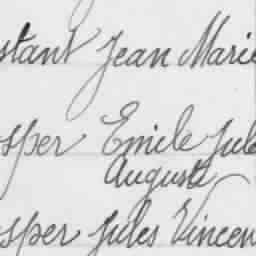 stant Jean Marie
sper Emile Jule
Auguste
sper Jules Vincen